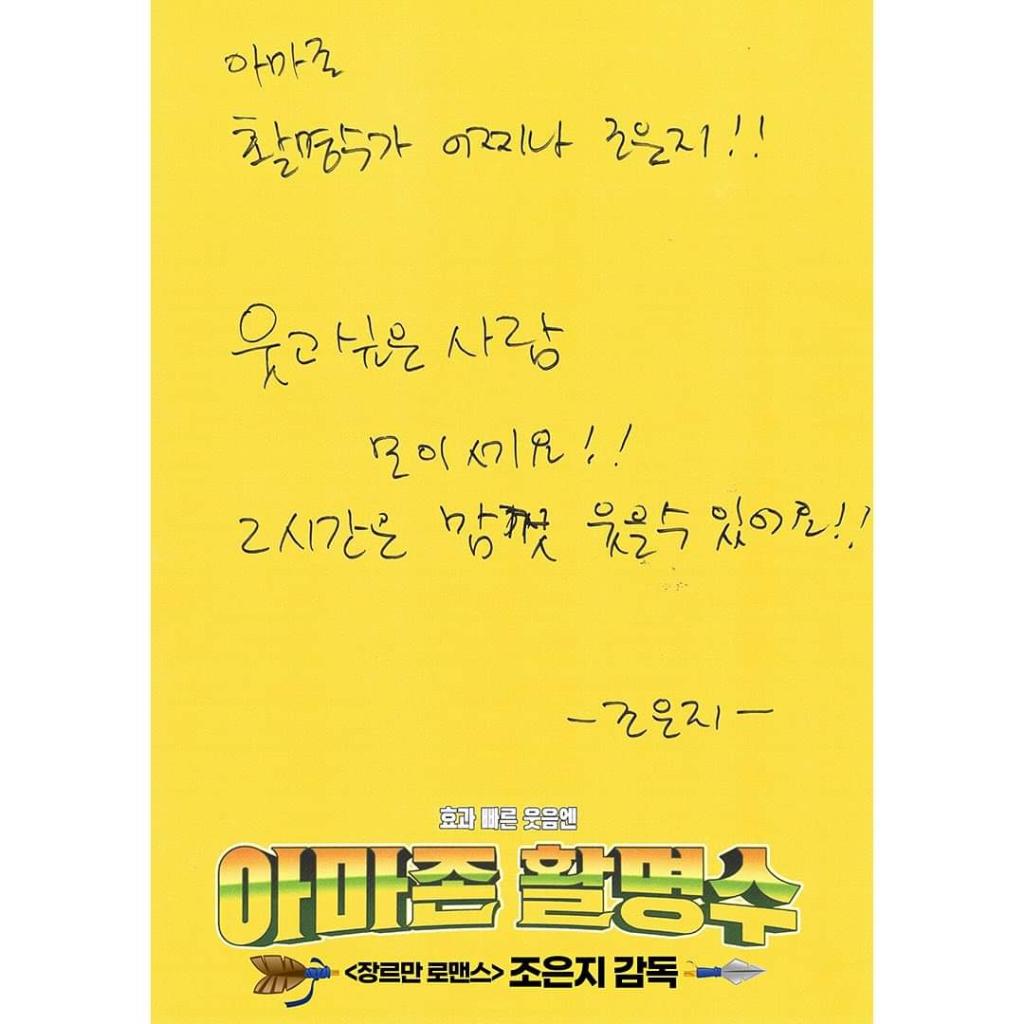 아마존
활명수가 어찌나 조은지!!
웃고 싶은 사람
모이세요!!
2시간은 맘껏 웃을수 있어요!!
-조은지-
효과 빠른 웃음엔
아마존 활명수
<장르만 로맨스> 조은지 감독